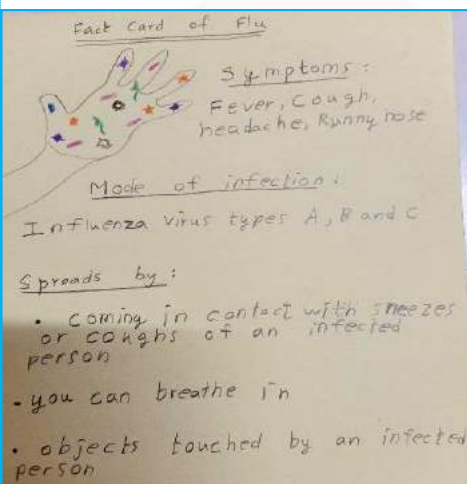 Fact Card of Flu
Symptoms:
Fever, Cough,
headache, Runny nose
Mode of infection:
Influenza virus types A, B and C
Spreads by:
• coming in contact with sneezes
or coughs of an infected
person
• you can breathe in
• objects touched by an infected
person